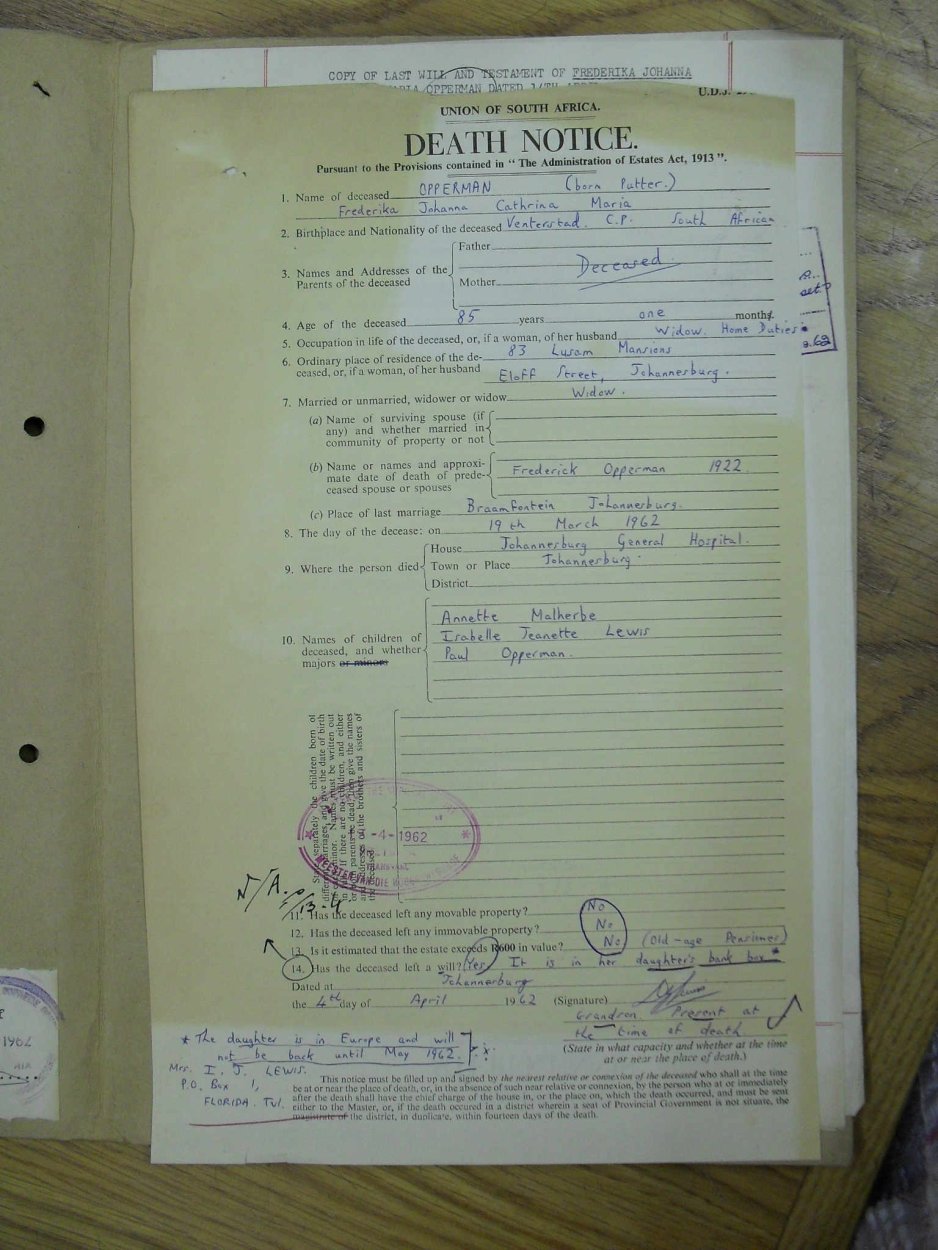 COPY OF LAST WILL AND TESTAMENT OF FREDERIKA JOHANNA
OPPERMAN DATED
U.D.J.
UNION OF SOUTH AFRICA.
DEATH NOTICE.
Pursuant to the Provisions contained in “ The Administration of Estates Act, 1913 ”.
1. Name of deceased OPPERMAN (born Putter.)
Frederika Johanna Cathrina Maria
2. Birthplace and Nationality of the deceased Venterstad. C.P. South African
3. Names and Addresses of the Parents of the deceased
Father
Deceased.
Mother
4. Age of the deceased 85 years one months.
5. Occupation in life of the deceased, or, if a woman, of her husband Widow. Home Duties
6. Ordinary place of residence of the de- 83 Lusam Mansions
ceased, or, if a woman, of her husband Eloff Street, Johannesburg.
7. Married or unmarried, widower or widow Widow.
(a) Name of surviving spouse (if
any) and whether married in
community of property or not
(b) Name or names and approxi-
mate date of death of prede- Frederick Opperman 1922
ceased spouse or spouses
(c) Place of last marriage Braamfontein Johannesburg.
8. The day of the decease: on 19th March 1962
9. Where the person died
House Johannesburg General Hospital.
Town or Place Johannesburg
District
10. Names of children of
deceased, and whether
majors or minors
Annette Malherbe
Isabelle Jeanette Lewis
Paul Opperman.
State separately the children born of
different marriages, and give the date of birth
of each minor. Names must be written out
in full. If there are no children, and either
or both parents be dead, then give the names
and addresses of the brothers and sisters of
the deceased
-4-1962
TRANSVAAL
MEESTER VAN DIE
N/A.
13-4
11. Has the deceased left any movable property? No
12. Has the deceased left any immovable property? No
13. Is it estimated that the estate exceeds R600 in value? No (Old-age Pensioner)
14. Has the deceased left a will? Yes, It is in her daughter's bank box *
Dated at Johannesburg
the 4th day of April 1962 (Signature)
Grandson Present at
the time of death.
(State in what capacity and whether at the time
at or near the place of death.)
* The daughter is in Europe and will
not be back until May 1962.
Mrs. I. J. LEWIS.
P.O. Box 1,
FLORIDA. Tvl.
This notice must be filled up and signed by the nearest relative or connexion of the deceased who shall at the time
be at or near the place of death, or, in the absence of such near relative or connexion, by the person who at or immediately
after the death shall have the chief charge of the house in, or the place on, which the death occurred, and must be sent
either to the Master, or, if the death occured in a district wherein a seat of Provincial Government is not situate, the
magistrate of the district, in duplicate, within fourteen days of the death.
1962